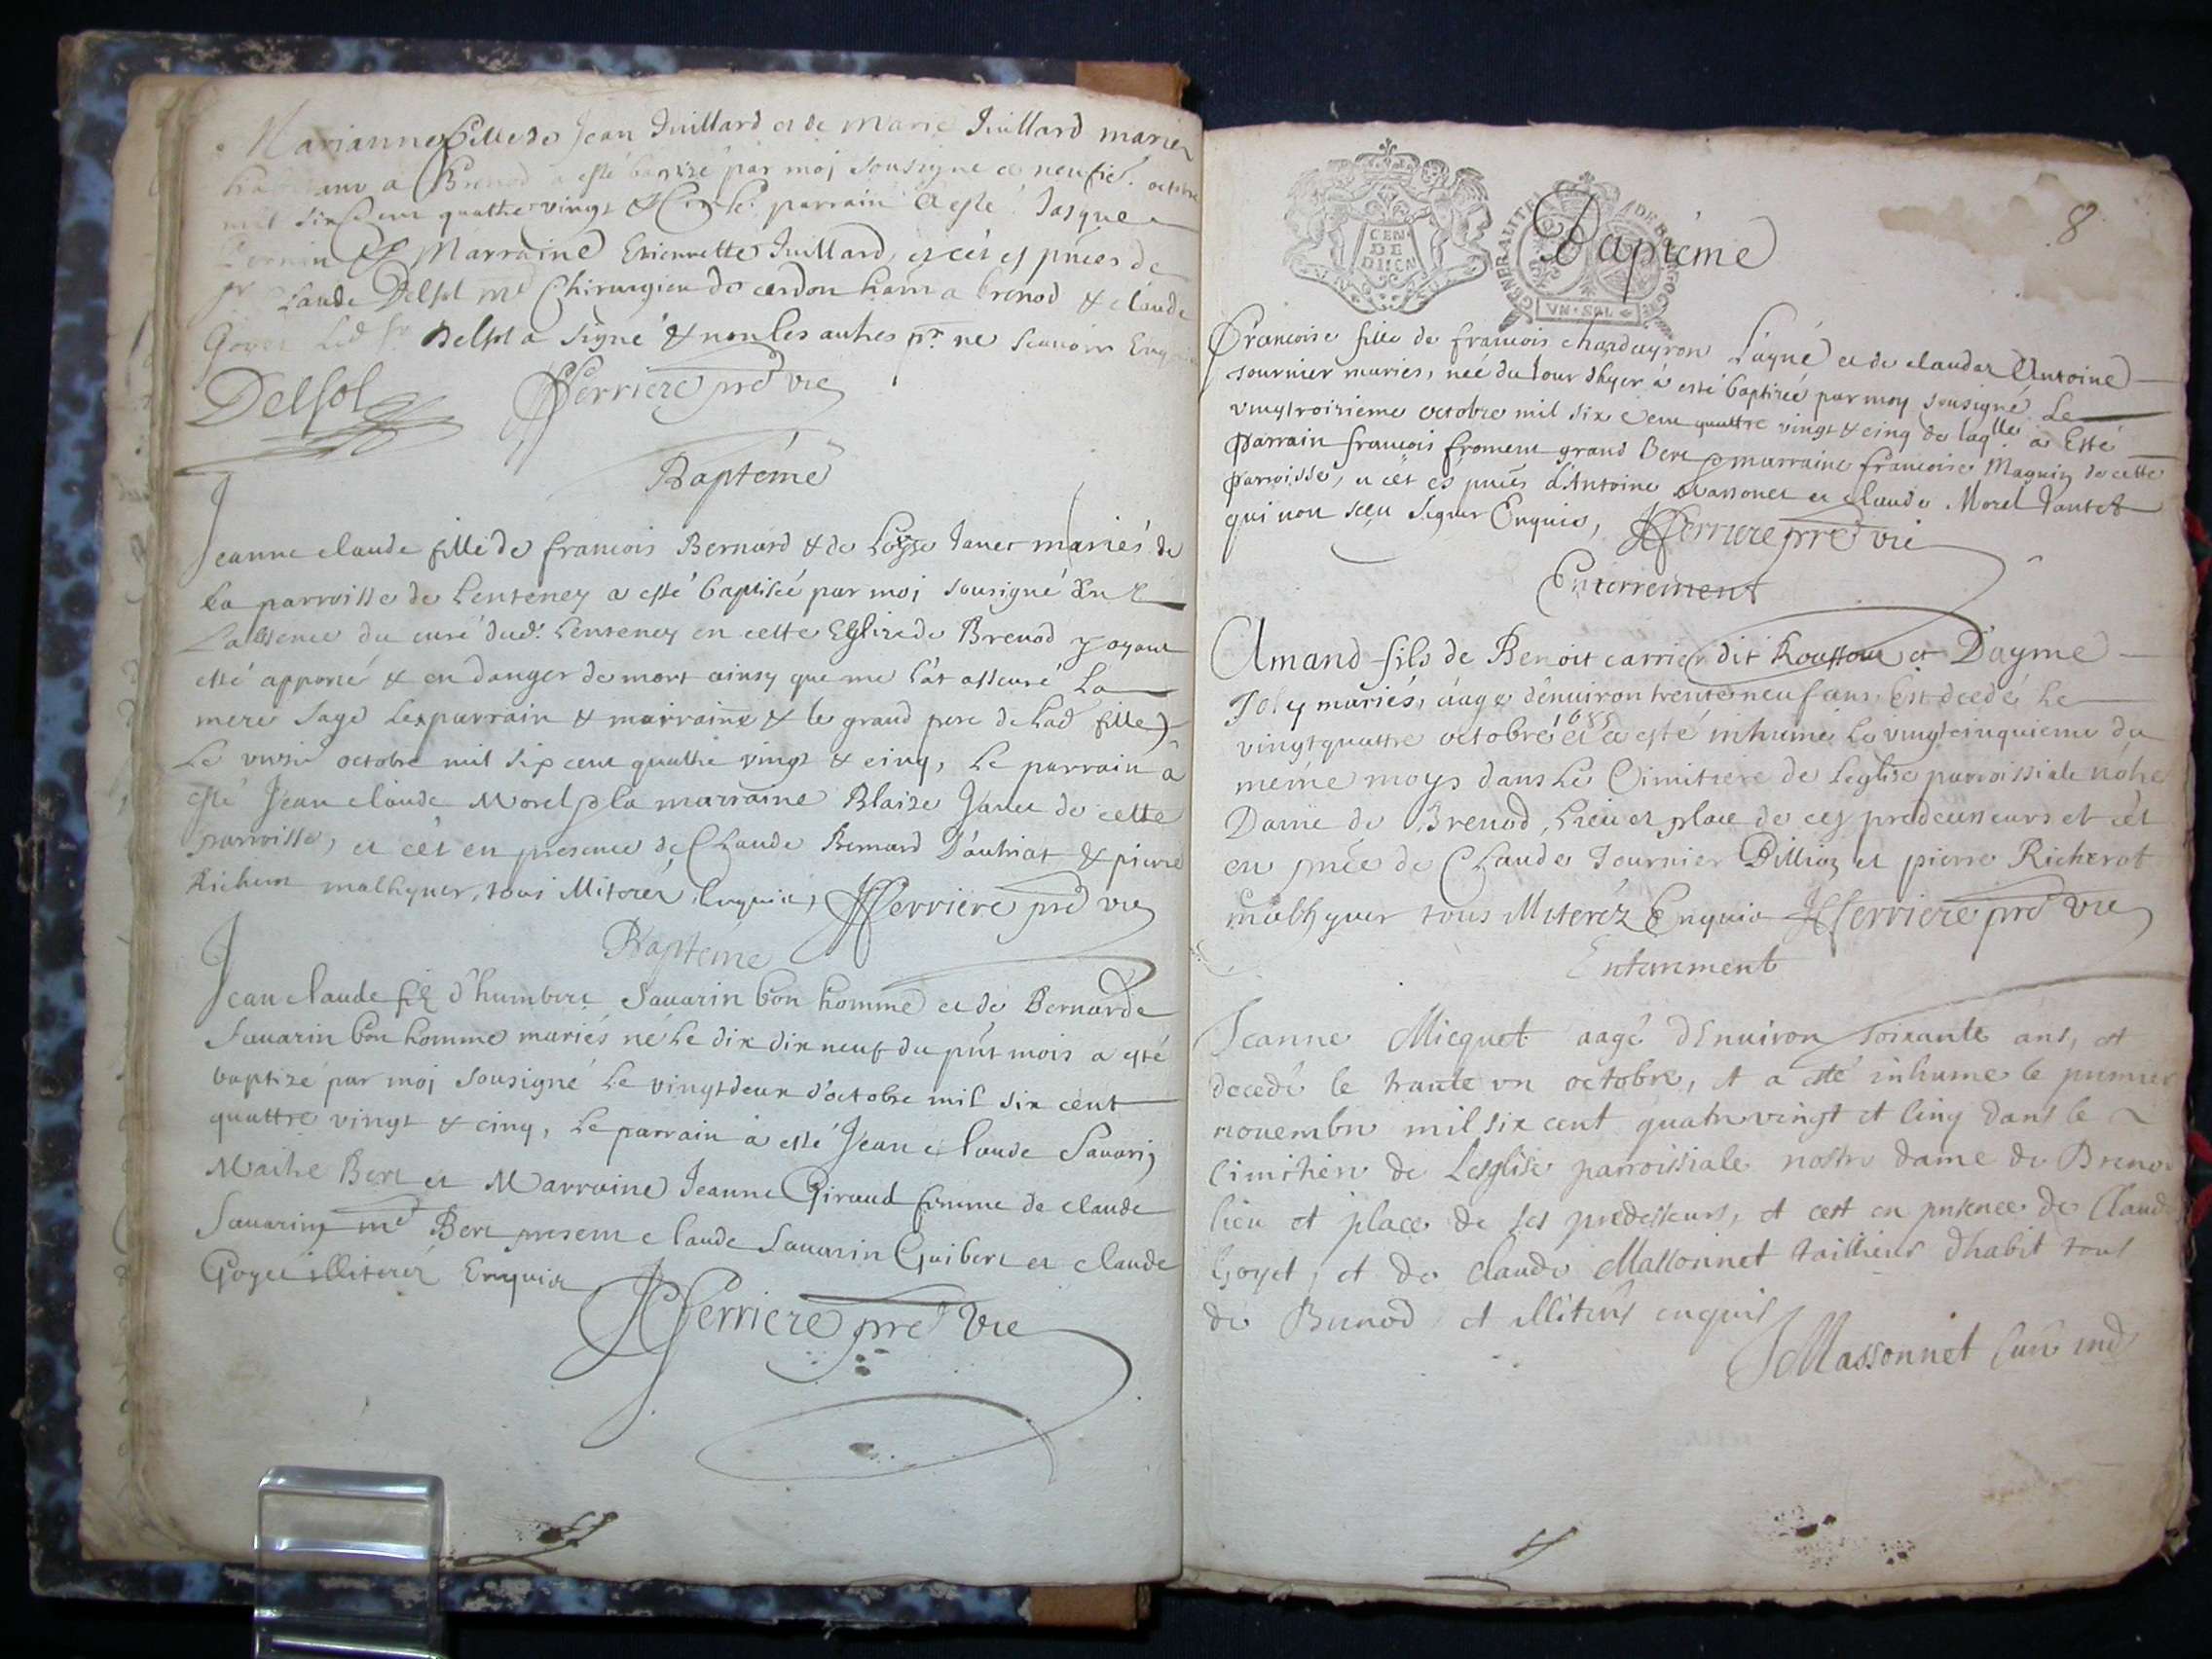 Marianne fille de Jean Juillard et de Marie Juillard mariez
a Brenod a esté batizé par moi sousigne ce neufie. octobre
mil six cent quattre vingt & cinq le parrain a esté Jasque
& Marraine Etiennette Juillard, et cét es pnces de
Sr Claude Delsol md Chirurgien de cerdon ham a brenod & claude
Goyet Led. Sr. Delsol a signé & non les autres pr. ne scauoir Enquis
Delsol JFerriere pre vie
Baptéme
Jeanne claude fille de francois Bernard & de Loyse Janet mariés de
La parroisse de Lenteney a esté baptisée par moi sousigné En
Labsence du curé dud. Lenteney en cette Eglise de Brenod y ayant
esté apporté & en danger de mort ainsy que me l'àt asseuré La
mere sage Les parrain & marraine & le grand pere de Lad fille
Le vnzie octobre mil six cent quattre vingt & cinq, Le parrain à
esté Jean claude Morel & la marraine Blaize Janet de cette
parroisse, et cét en presence de Claude Bernard D'autriat & pierre
Richerot malhyuer, tous illiterez Enquis, JFerriere pre vie
Baptéme
Jean claude filz d'humbert Sauarin bon homme et de Bernarde
Sauarin bon homme mariés né Le dix dix neuf du pñt mois a esté
baptizé par moi sousigné Le vingtdeux d'octobre mil six cent
quattre vingt & cinq, Le parrain à esté Jean claude Sauarin
Maitre Bert et Marraine Jeanne Giraud femme de claude
Sauarin md Bert present claude Sauarin Guibert et claude
Goyet illiterez Enquis
JFerriere pre vie
8
GENERALITE DE BOURGOGNE
CEN DE DIIEN
VN·SOL
Baptéme
Francoise fille de francois chardeyron Layné et de claudaz Antoine
Tournier mariés, née du Jour d'hyer à esté baptizée par moy sousigné Le
vingtroizieme octobre mil six cent quattre vingt & cinq de laqlle à Esté
parrain francois froment grand Bert & marraine francoise Magnin de cette
parroisse, et cét és pnces d'Antoine Massonet et claude Morel Jantet
qui non sceu signer Enquis, JFerriere pre vie
Enterrement
Amand fils de Benoit carrier dit Roussout et Dayme
Joly mariés, àage dénuiron trente neuf ans, Est decedé Le
vingtquattre octobre 1685 et à esté inhumé Le vingtcinquieme du
meme moys dans Le Cimitiere de Leglise parroissiale nôtre
Dame de Brenod, Lieu et place de ces predecesseurs et cét
en pnce de Claude Tournier Dillioz et pierre Richerot
malhyuer tous illiteréz Enquis JFerriere pre vie
Enterement
Jeanne Micquet aagé d'Enuiron soixante ans, et
decedé le trante vn octobre, et a esté inhumé le premier
nouembre mil six cent quatre vingt et cinq dans le
cimitiere de Lesglise parroissiale nostre dame de Brenod
lieu et place de ses predesseurs, et cest en presence de Claude
Goyet, et de claude Massonnet tailleur d'habit tous
de Brenod et illiterés enquis
JMassonnet Curé ind